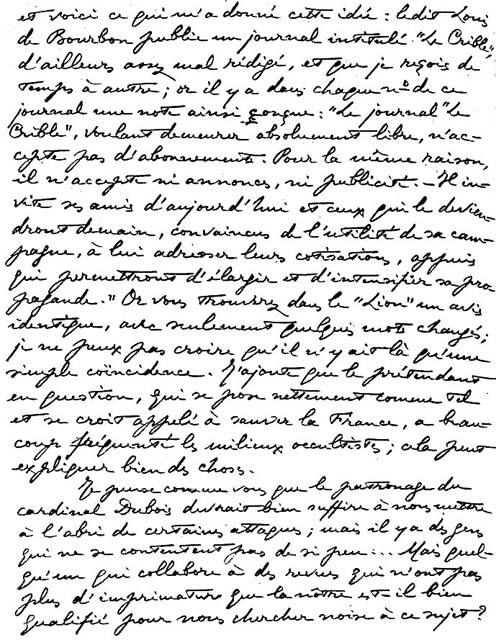 et voici ce qui m'a donné cette idée : ledit Louis
de Bourbon publie un journal intitulé "Le Crible",
d'ailleurs assez mal rédigé, et que je reçois de
temps à autre ; or il y a dans chaque nº de ce
journal une note ainsi conçue : "Le journal "Le
Crible", voulant demeurer absolument libre, n'ac-
cepte pas d'abonnements. Pour la même raison,
il n'accepte ni annonces, ni publicité. — Il in-
vite ses amis d'aujourd'hui et ceux qui le devien-
dront demain, convaincus de l'utilité de sa cam-
pagne, à lui adresser leurs cotisations, appuis
qui permettront d'élargir et d'intensifier sa pro-
pagande." Or vous trouverez dans le "Lion" un avis
identique, avec seulement quelques mots changés ;
je ne peux pas croire qu'il n'y ait là qu'une
simple coïncidence. J'ajoute que le prétendant
en question, qui se pose nettement comme tel
et se croit appelé à sauver la France, a beau-
coup fréquenté les milieux occultistes ; cela peut
expliquer bien des choses.
Je pense comme vous que le patronage du
cardinal Dubois devrait bien suffire à nous mettre
à l'abri de certaines attaques ; mais il y a des gens
qui ne se contentent pas de si peu... Mais quel-
qu'un qui collabore à des revues qui n'ont pas
plus d'imprimatur que la nôtre est-il bien
qualifié pour nous chercher noise à ce sujet ?